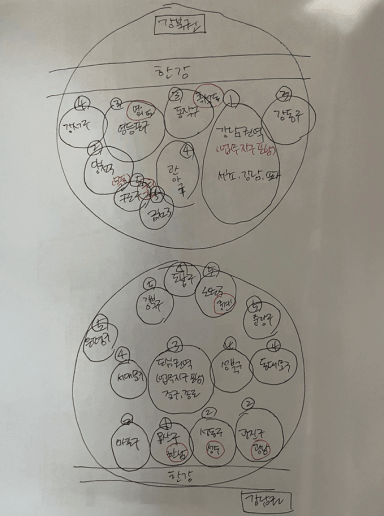 강북권
한강
④
강서구
③
여의도
영등포구
②
동작구
흑석동
①
강남권역
(업무지구 포함)
서초, 강남, 송파
강동구
③
양천구
목동
구로구
⑤
금천구
④
관악구
④
도봉구
⑤
강북구
⑤
노원구
⑤
중랑구
⑤
은평구
④
서대문구
③
도심권역
(업무지구 포함)
중구, 종로
성북구
④
동대문구
③
마포구
①
용산구
한남
②
성동구
성수
②
광진구
광남
한강
강남권